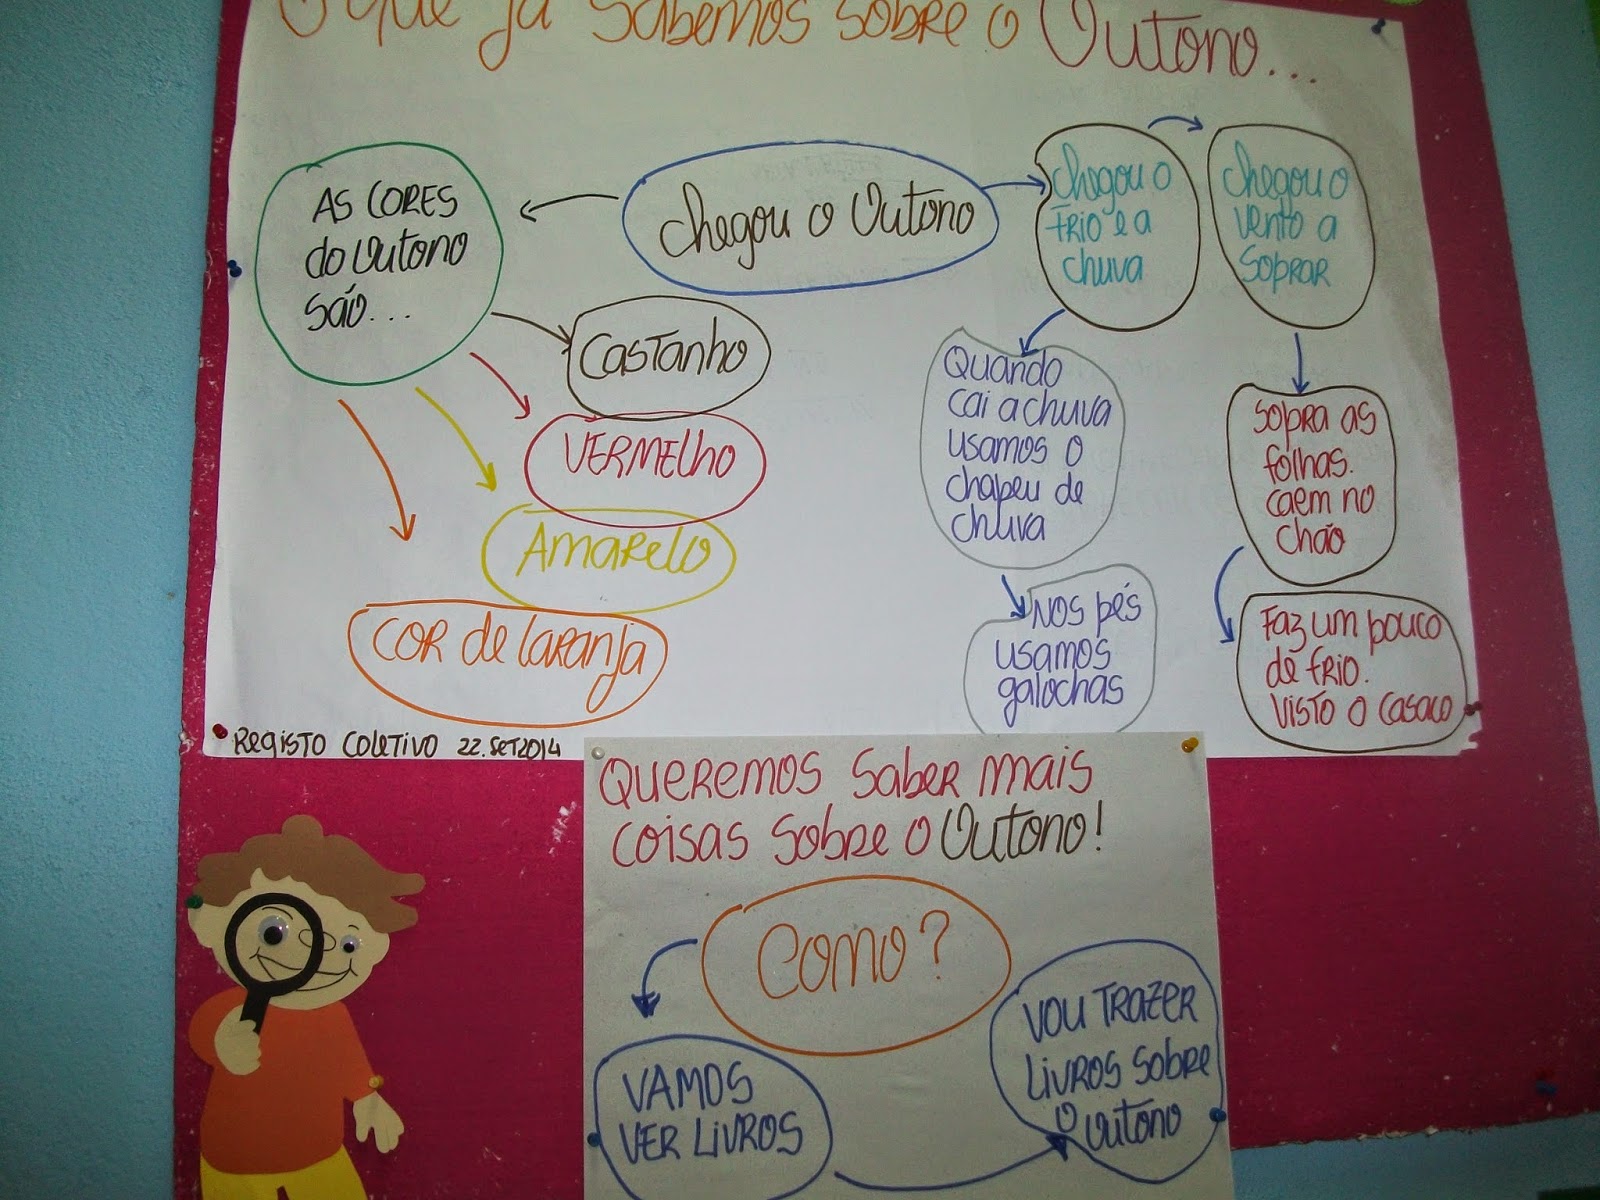 O que já sabemos sobre o Outono...
chegou o Outono
AS CORES
do Outono
são...
Castanho
VERMElho
AmARElo
COR de laranja
chegou o
frio e a
chuva
chegou o
vento a
soprar
Quando
cai a chuva
usamos o
chapeu de
chuva
Nos pés
usamos
galochas
sopra as
folhas.
caem no
chão
Faz um pouco
de frio.
Visto o casaco
Registo Coletivo 22.SET2014
Queremos saber mais
coisas sobre o Outono!
Como?
VAMOS
VER LIVROS
VOU TRAZER
LIVROS SOBRE
O Outono